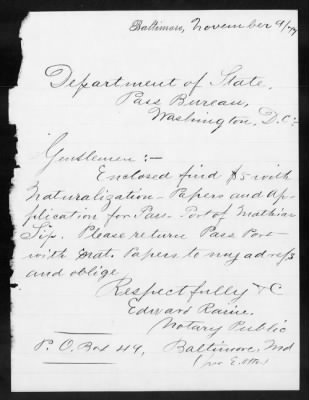 Baltimore, November 9/77
Department of State,
Pass Bureau,
Washington, D.C:-
Gentlemen:-
Enclosed find $5 with
Naturalization-Papers and Ap-
plication for Pass-Port of Mathias
Sip. Please return Pass Port
with Nat. Papers to my adress
and oblige
Respectfully &C
Edward Raine.
Notary Public
P. O. Box 49, Baltimore, Md